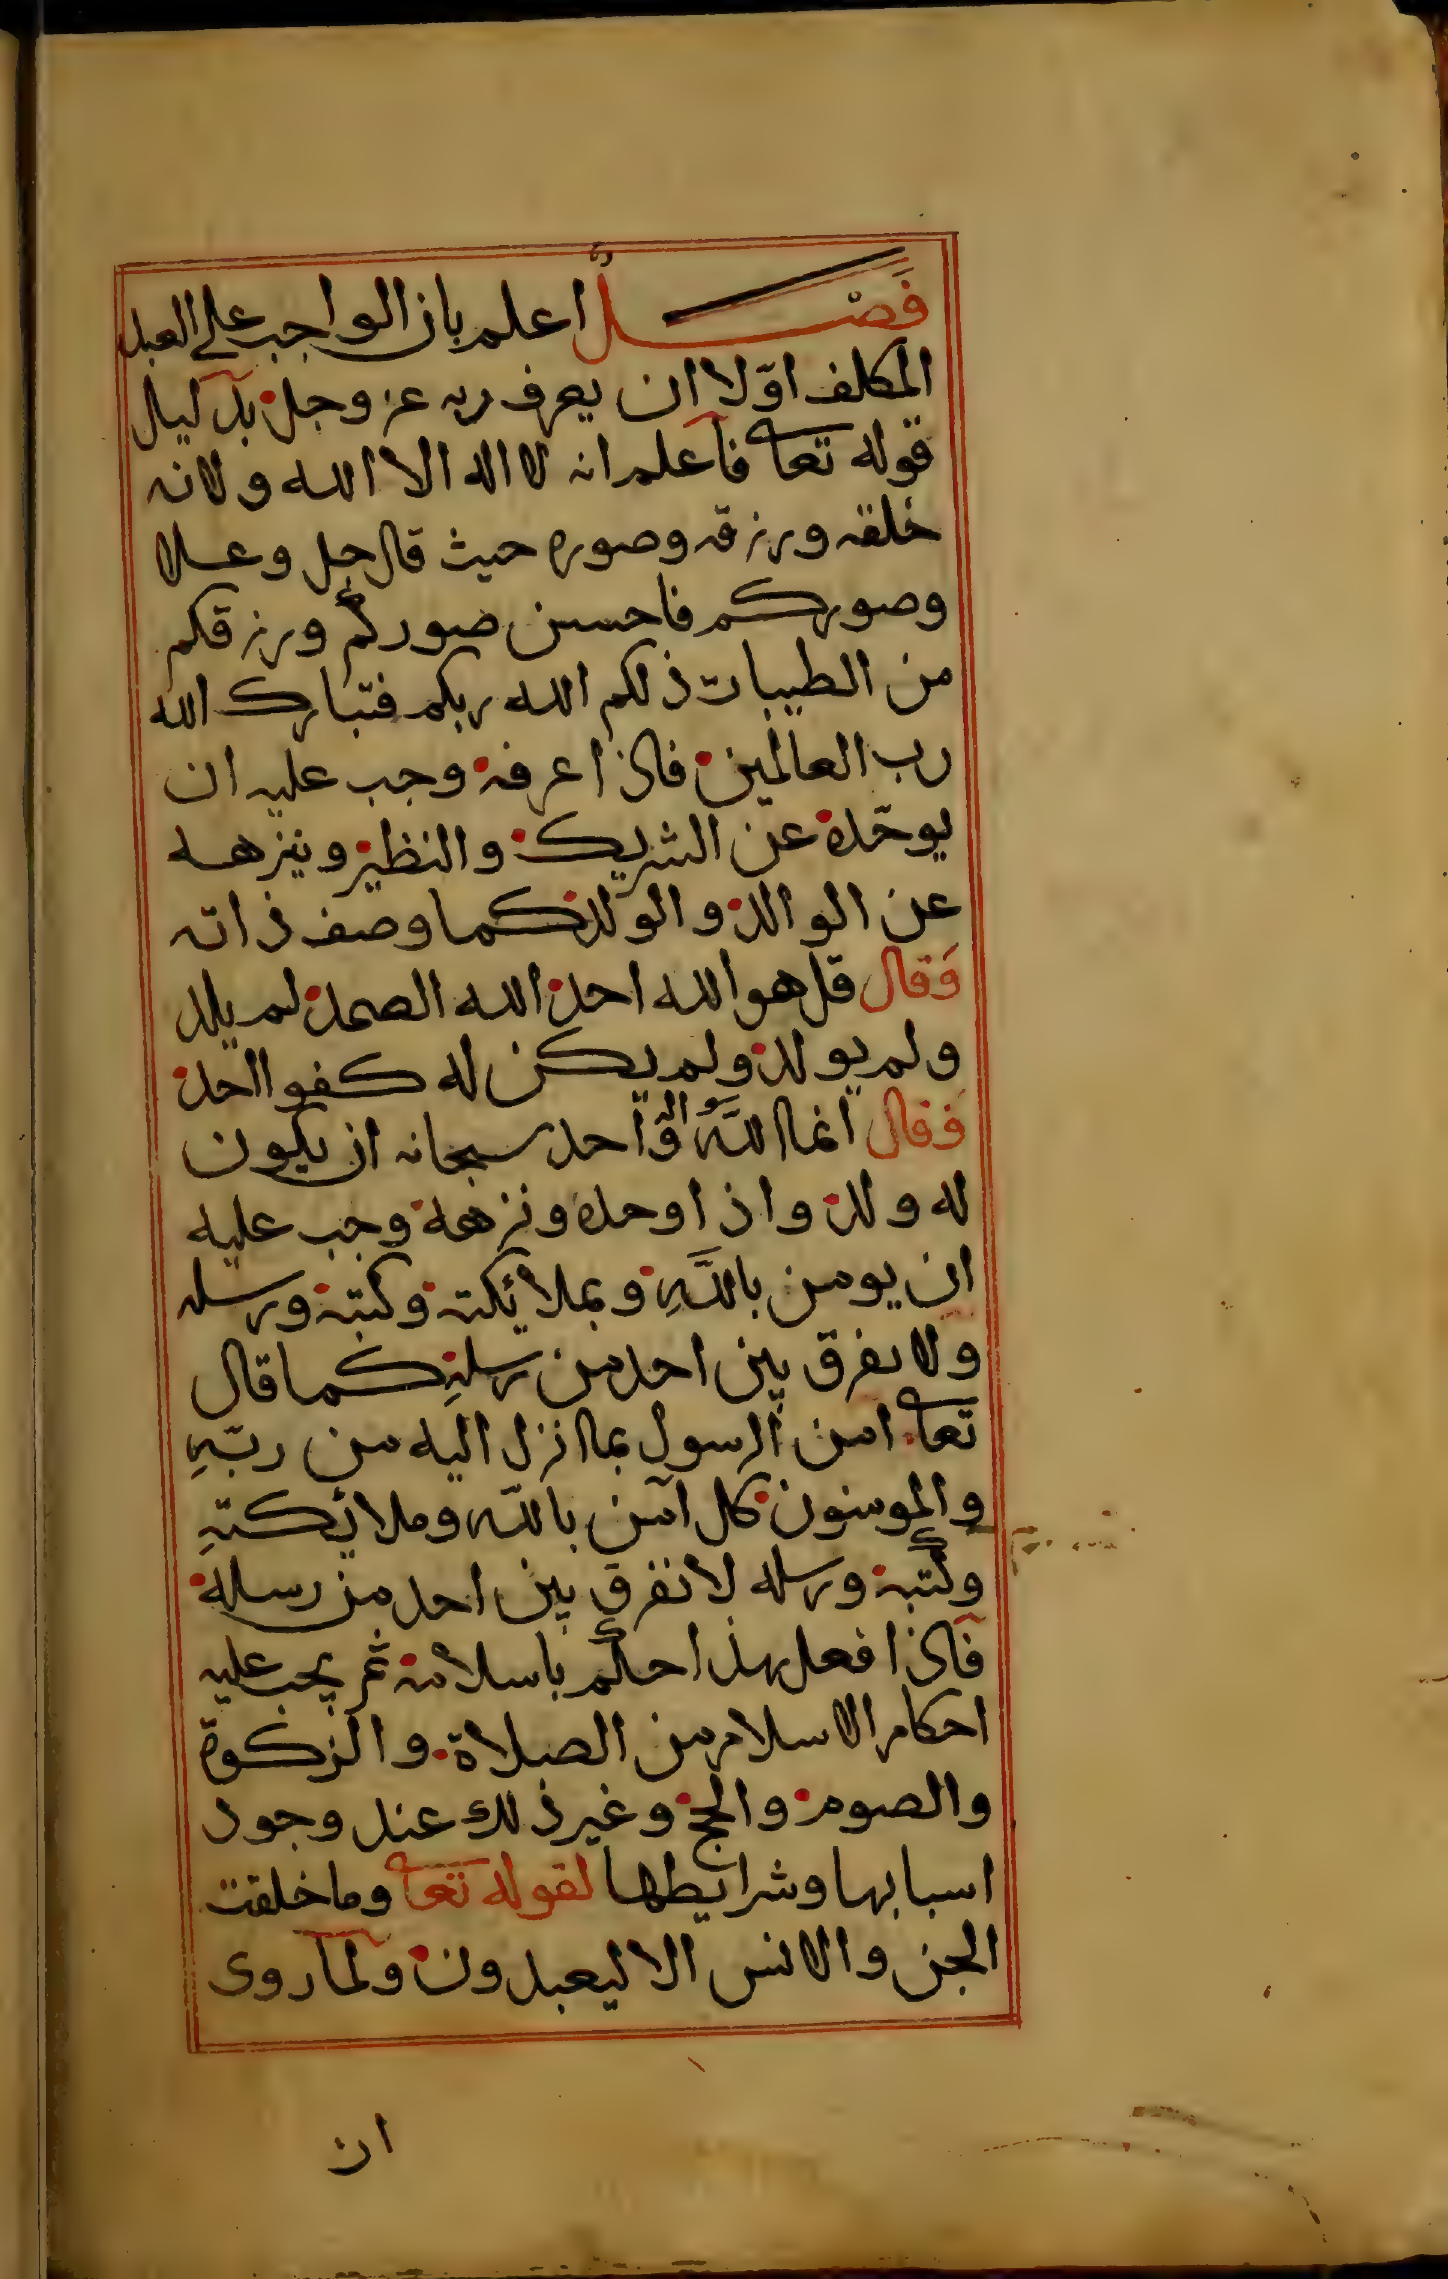 فصل اعلم بان الواجب على العبد
المكلف اوّلا ان يعرف ربه عز وجل بدليل
قوله تعا فاعلم انه لا اله الا الله ولانه
خلقه ورزقه وصوره حيث قال جل وعلا
وصوركم فاحسن صوركم ورزقكم
من الطيبات ذلكم الله ربكم فتبارك الله
رب العالمين فاذا عرفه وجب عليه ان
يوحّده عن الشريك والنظير وينزهه
عن الوالد والولد كما وصف ذاته
وقال قل هو الله احد الله الصمد لم يلد
ولم يولد ولم يكن له كفوا احد
فقال انما اللّه اله واحد سبحانه ان يكون
له ولد واذا وحده ونزهه وجب عليه
ان يومن باللّهِ وبملائكته وكتبه ورسله
ولا يفرق بين احد من رسلهِ كما قال
تعا امن الرسول بما انزل اليه من ربّهِ
والمومنون كل آمن باللّه وملائكتهِ
وكتبه ورسله لا نفرق بين احد من رسله
فاذا فعل هذا حكم باسلامه ثم يجب عليه
احكام الاسلام من الصلاة والزكوة
والصوم والحج وغير ذلك عند وجود
اسبابها وشرايطها لقوله تعا وما خلقت
الجن والانس الا ليعبدون ولما روى
ان